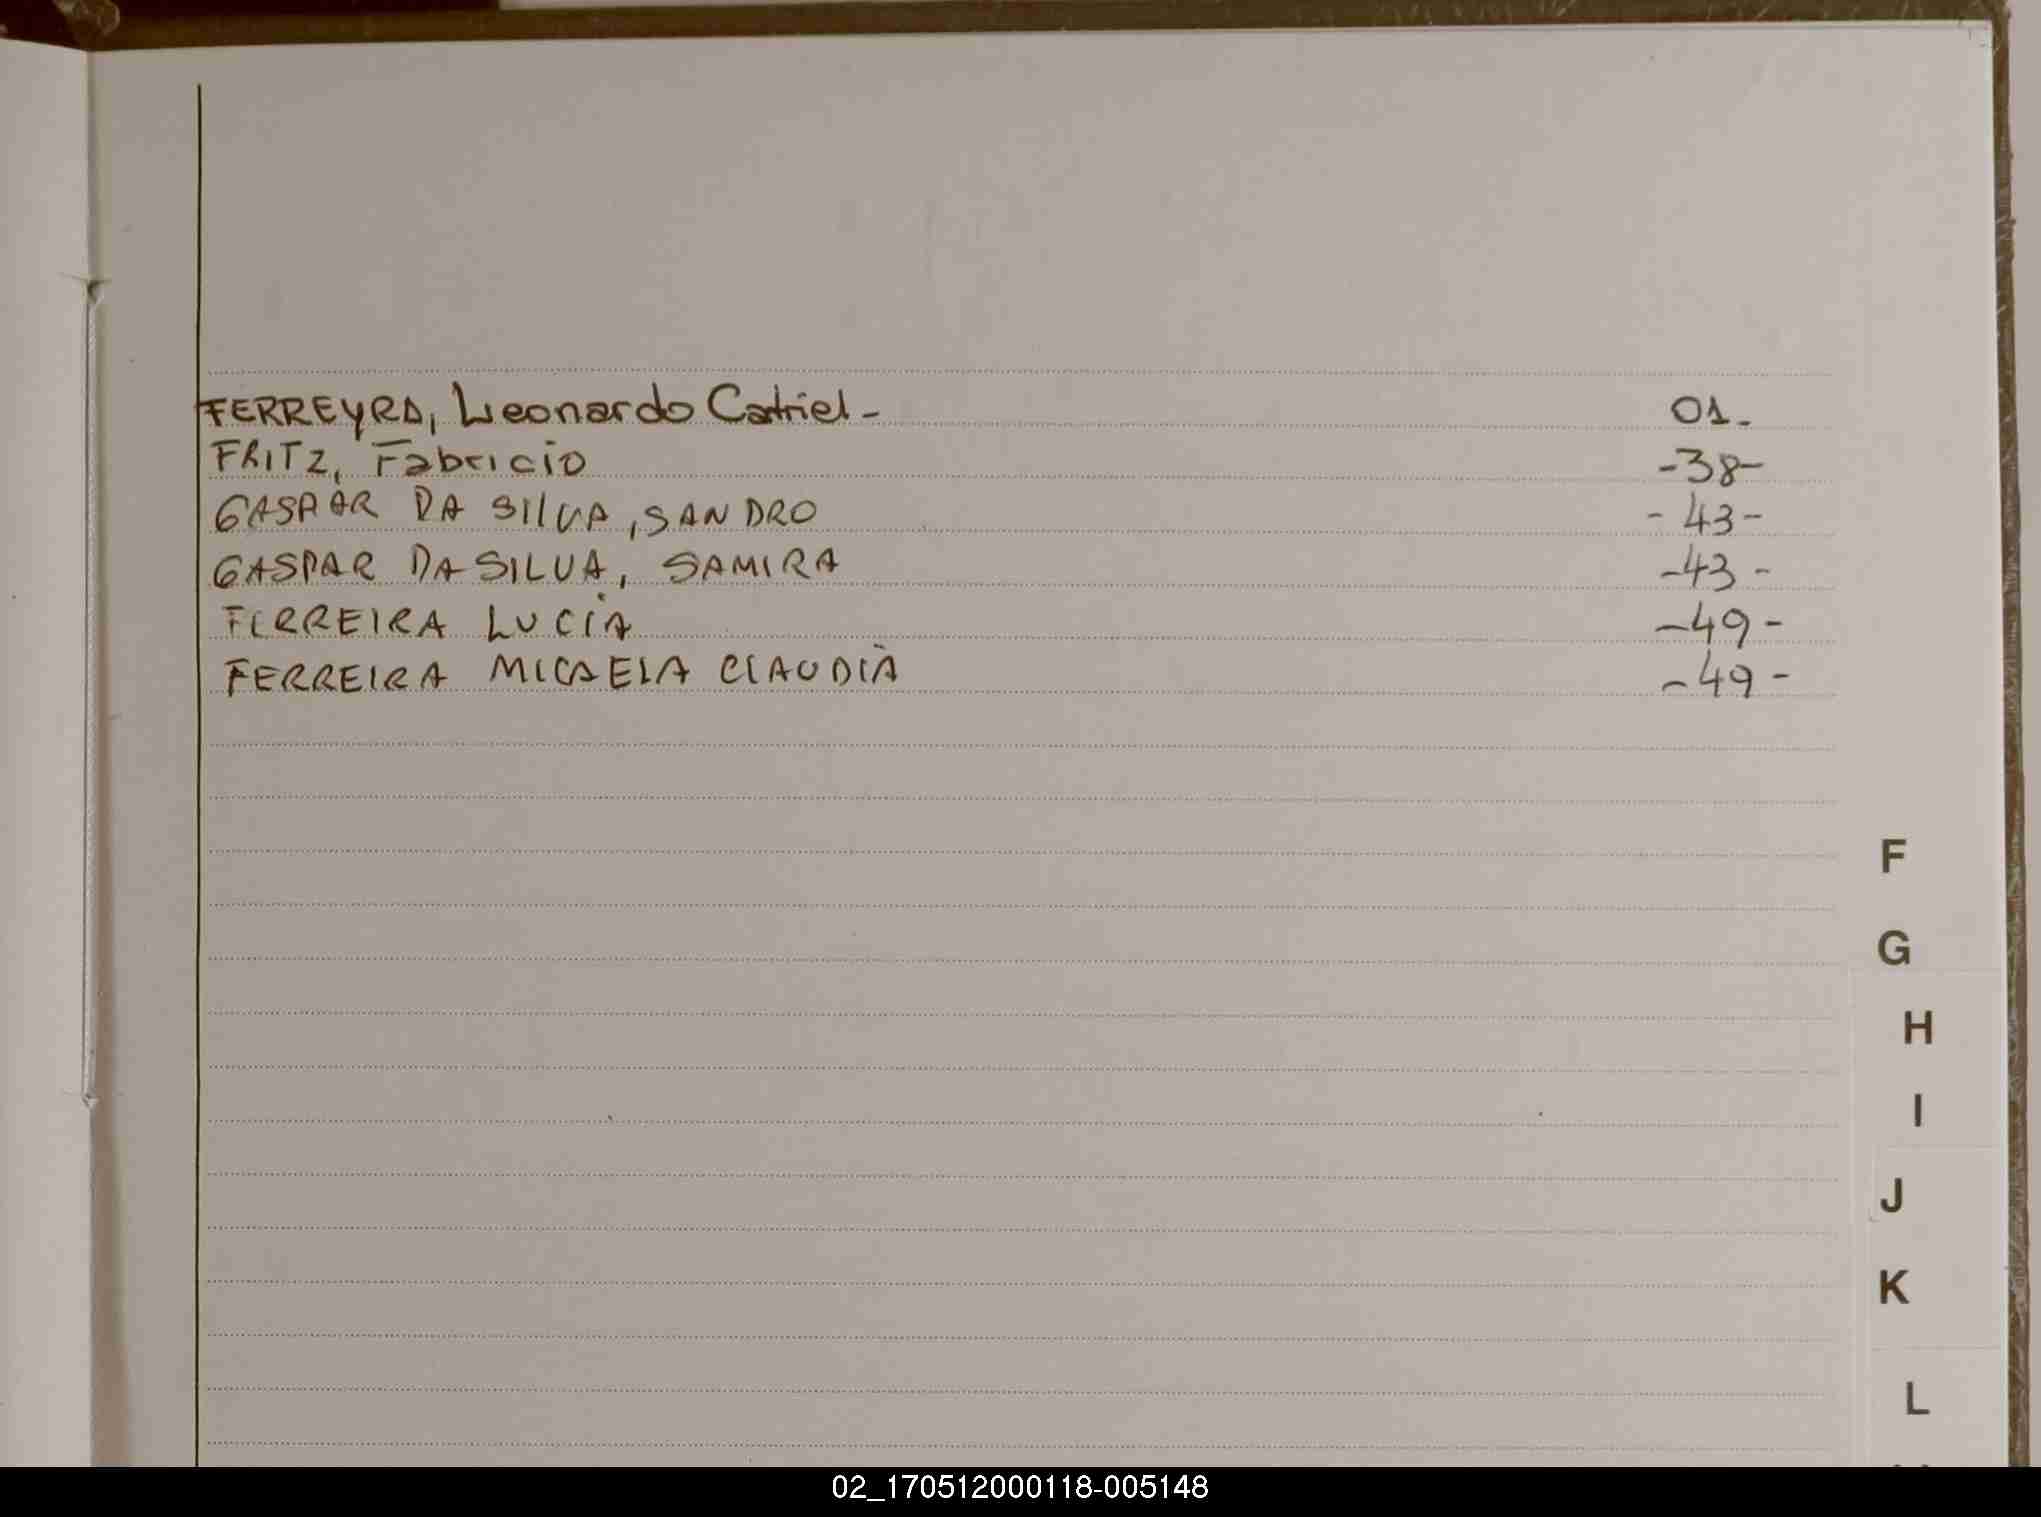 FERREYRA, Leonardo Catriel - 01-
FRITZ, Fabricio -38-
GASPAR DA SILVA, SANDRO - 43-
GASPAR DA SILVA, SAMIRA -43 -
FERREIRA LUCÍA -49 -
FERREIRA MICAELA CLAUDIA -49 -
F
G
H
I
J
K
L
02_170512000118-005148